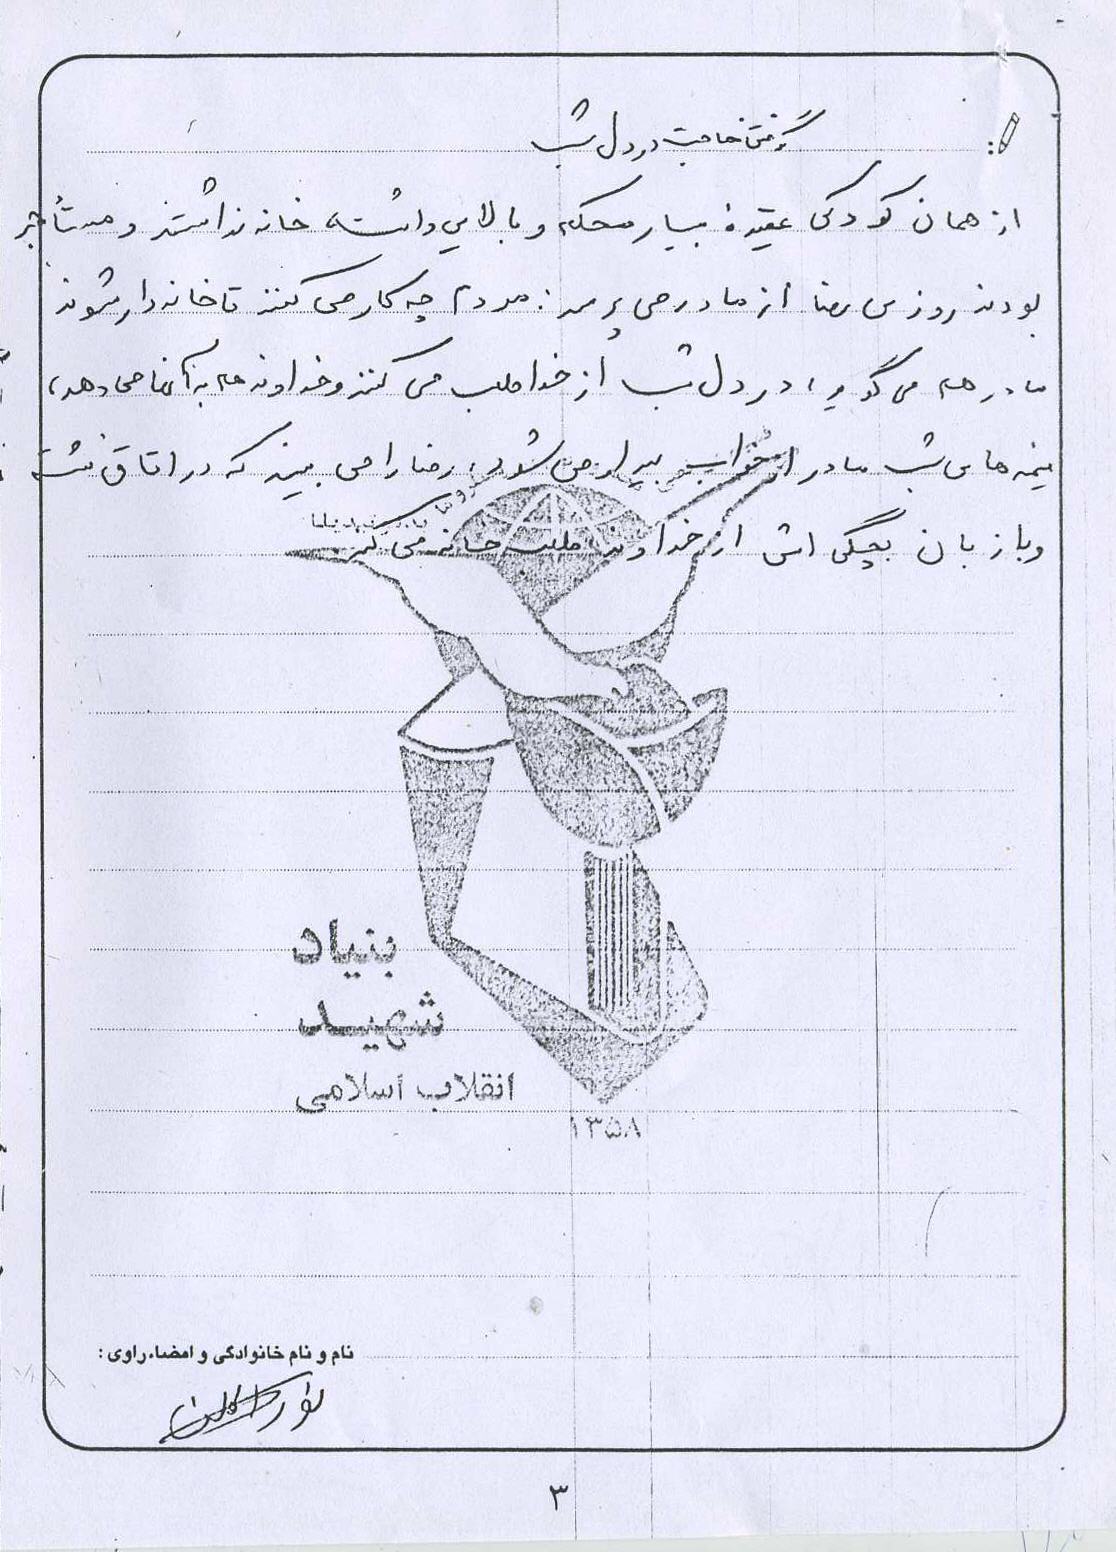 گرفتن حاجت در دل شب
از همان کودکی عقیدهٔ بسیار محکم و بالایی داشت، خانه نداشتند و مستأجر
بودند روزی رضا از مادر می پرسد: مردم چه کار می کنند تا خانه دار شوند
مادر هم می گوید، در دل شب از خدا طلب می کنند و خداوند هم به آنها می دهد،
نیمه های شب مادر از خواب بیدار می شود، رضا را می بیند که در اتاق نشسته
و با زبان بچگی اش از خداوند طلب خانه می کند.
بنیاد
شهید
انقلاب اسلامی
۱۳۵۸
نام و نام خانوادگی و امضاء راوی:
۳